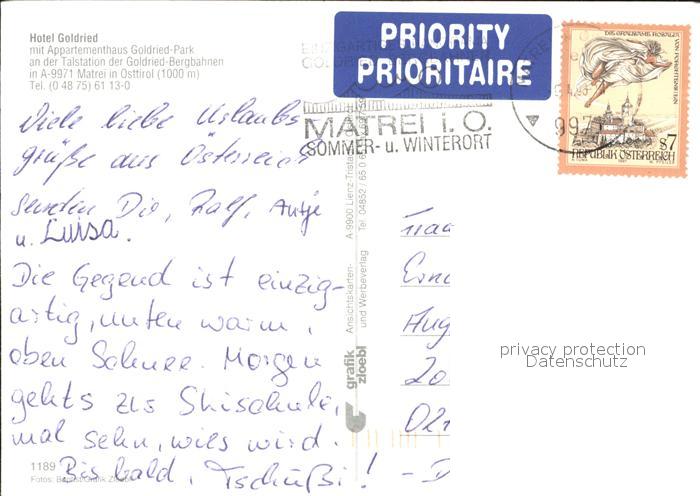 Hotel Goldried
mit Appartementhaus Goldried-Park
an der Talstation der Goldried-Bergbahnen
in A-9971 Matrei in Osttirol (1000 m)
Tel. (0 48 75) 61 13-0
PRIORITY
PRIORITAIRE
MATREI i. O.
SOMMER- u. WINTERORT
997
DIE GRAUSAME ROSALIA VON FORCHTENSTEIN
s7
REPUBLIK ÖSTERREICH
Viele liebe Urlaubs-
grüße aus Österreich
senden Dir, Ralf, Antje
u. Luisa.
Die Gegend ist einzig-
artig, unten warm,
oben Schnee. Morgen
gehts zur Skischule,
mal sehn, wies wird.
Bis bald, Tschüßi!
Ansichtskarten-
und Werbeverlag
A-9900 Lienz-Trista
Tel. 04852 / 65 0 6
grafik
zloebl
Frau
Aug
02
- D
privacy protection
Datenschutz
1189
Fotos: Baptist/Grafik Zloebl